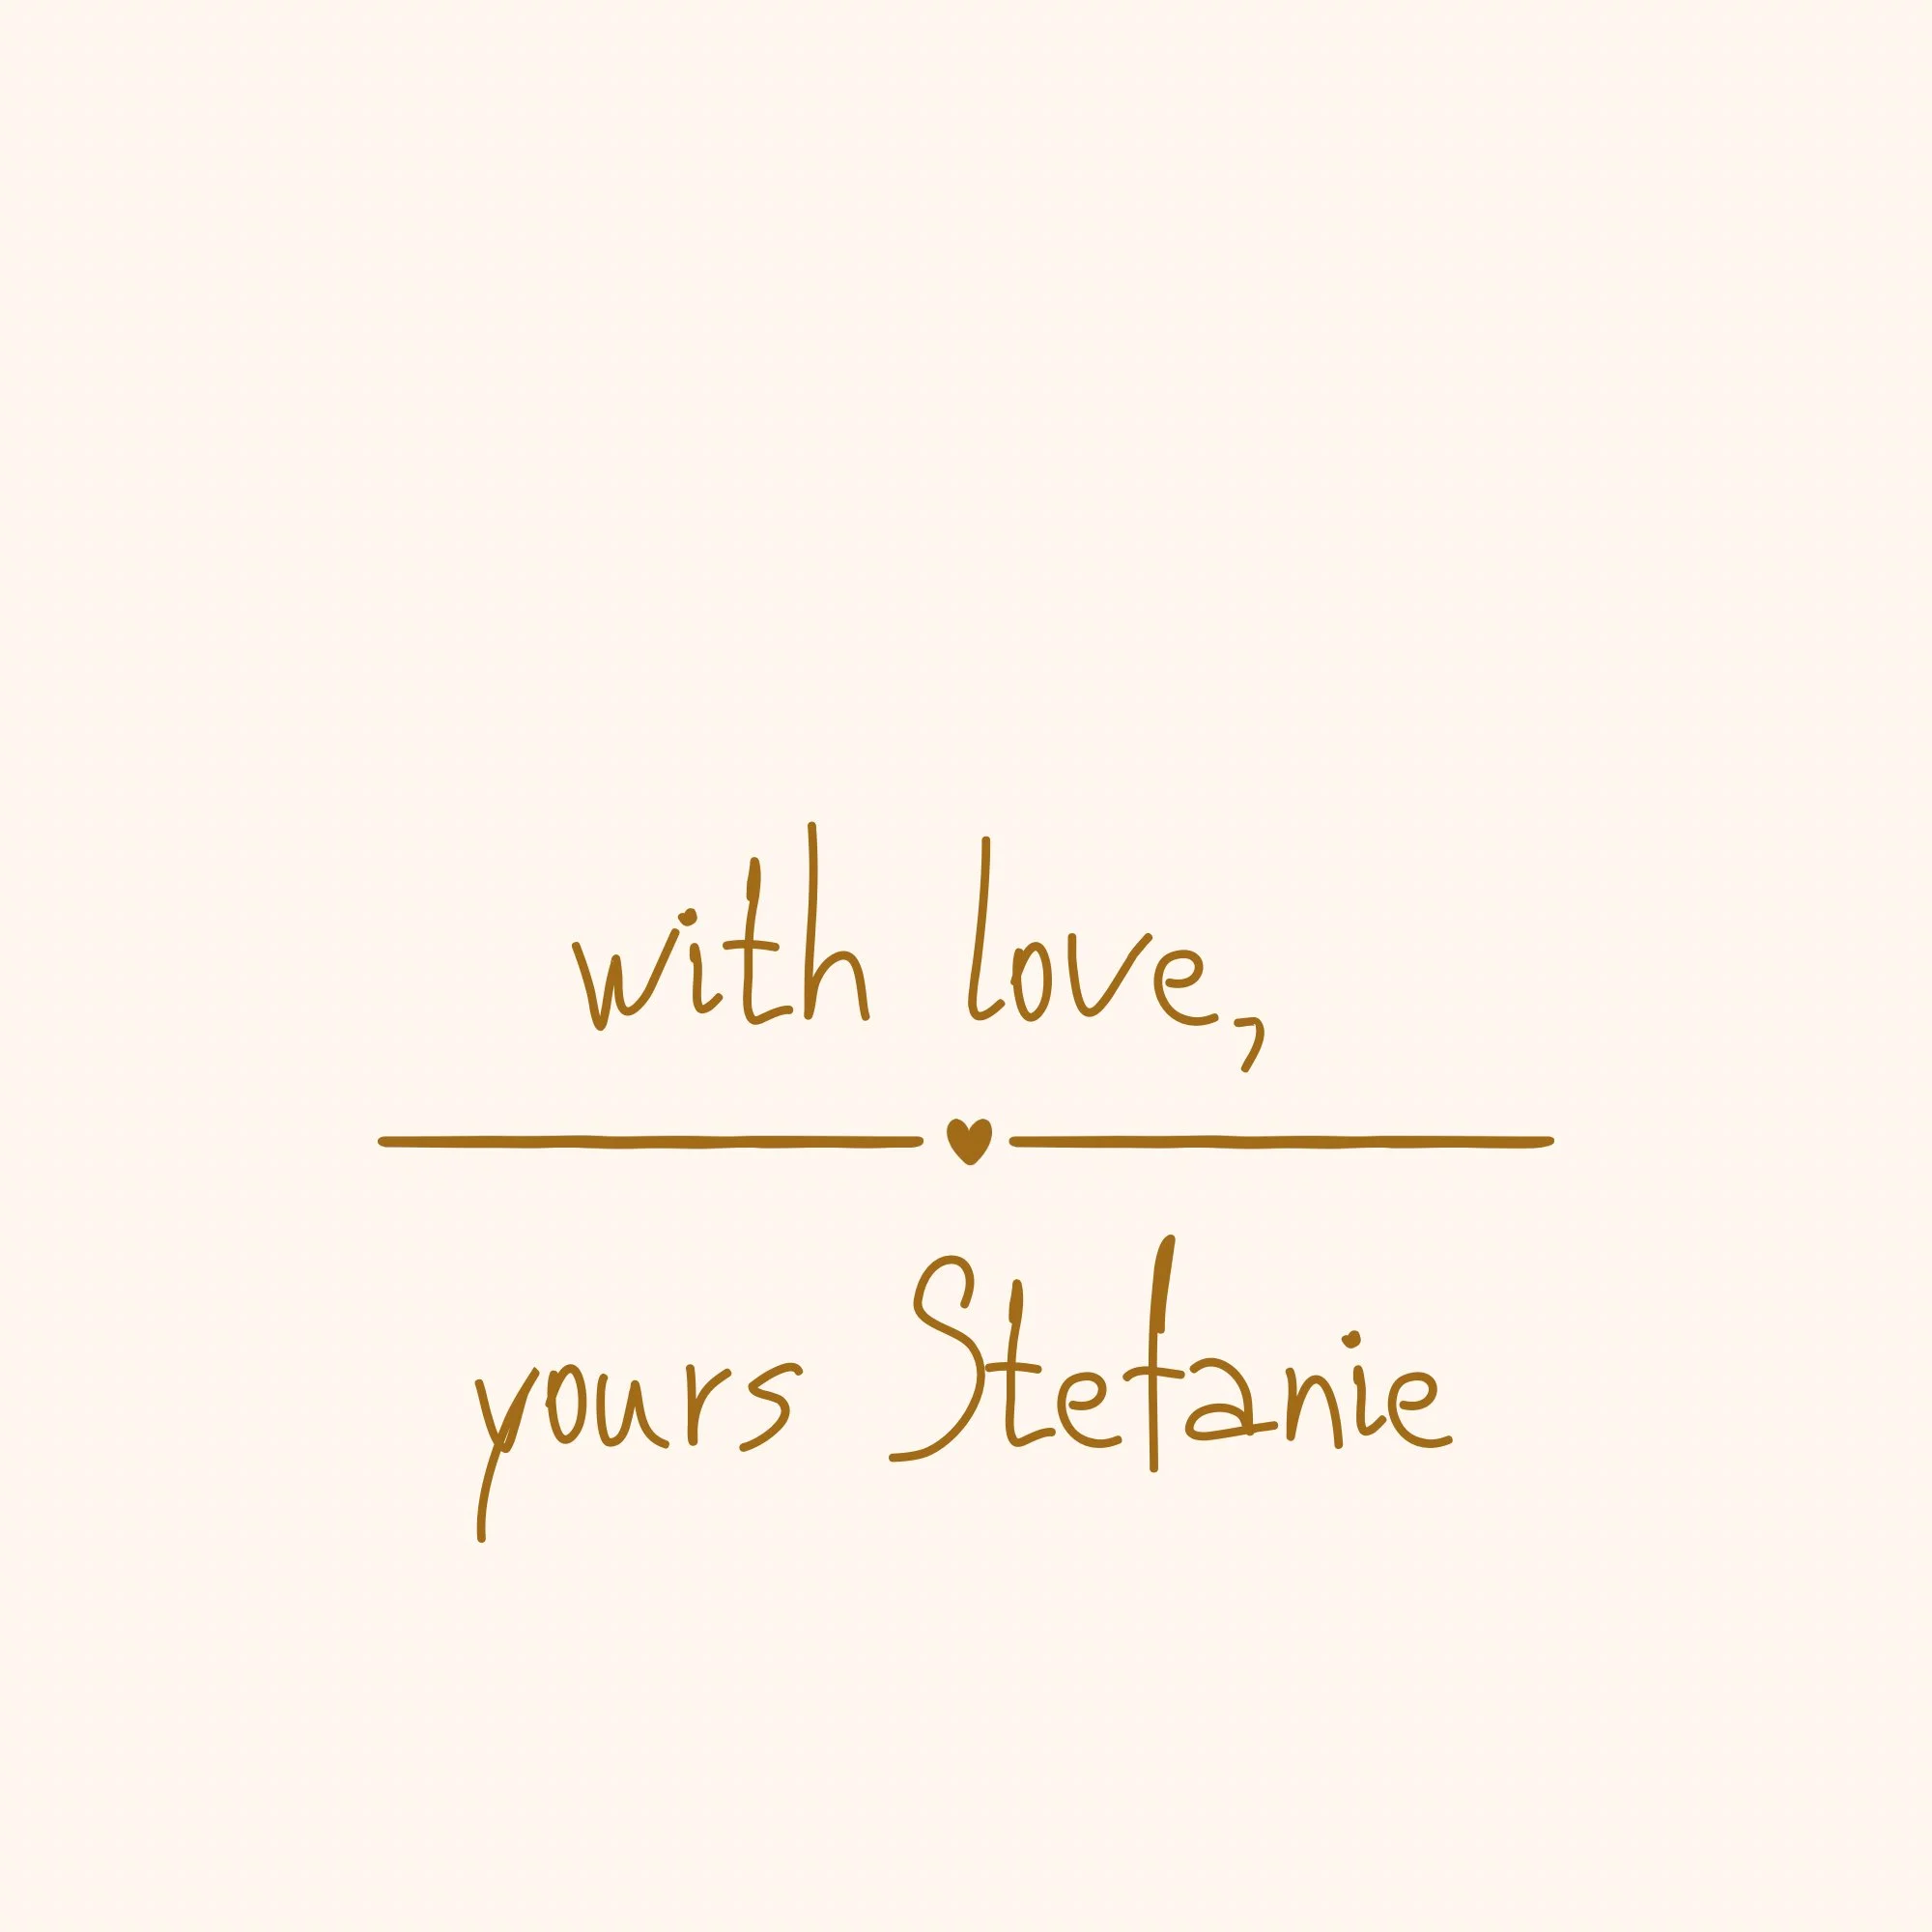 with love,
yours Stefanie